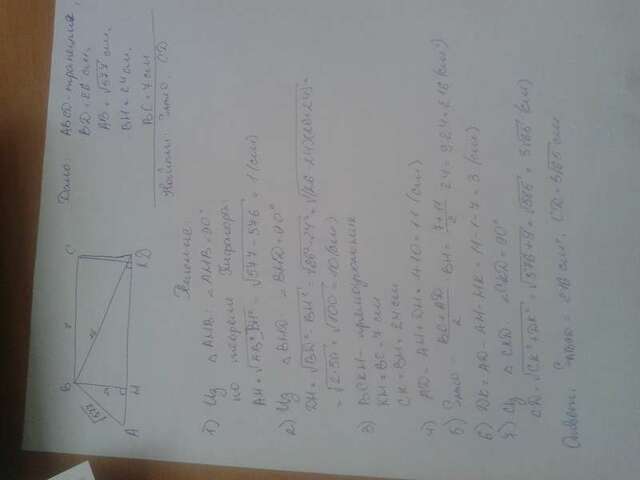 Дано: ABCD-трапеция,
BD=26 см.
AB=√577 см.
BH=24 см.
BC=7 см
Найти: Sтрап., CD
B 7 C
√577
A H K D
Решение:
1) Из △AHB: ∠AHB=90°
по теореме Пифагора
AH=√AB²-BH² = √577-576 = 1 (см)
2) Из △BHD ∠BHD=90°
DH=√BD²-BH² = √26²-24² = √(26-24)(26+24) =
=√2·50 = √100 = 10 (см)
3) BCKH- прямоугольник
KH=BC=7 см
CK=BH=24 см
4) AD=AH+DH=1+10=11 (см)
5) Sтрап = BC+AD/2 BH = 7+11/2 24 = 9·24=216 (см²)
6) DK=AD-AH-HK=11-1-7=3 (см)
7) Из △CKD ∠CKD=90°
CD=√CK²+DK² = √576+9 = √585 = 3√65 (см)
Ответ: SABCD=216 см², CD=3√65 см.